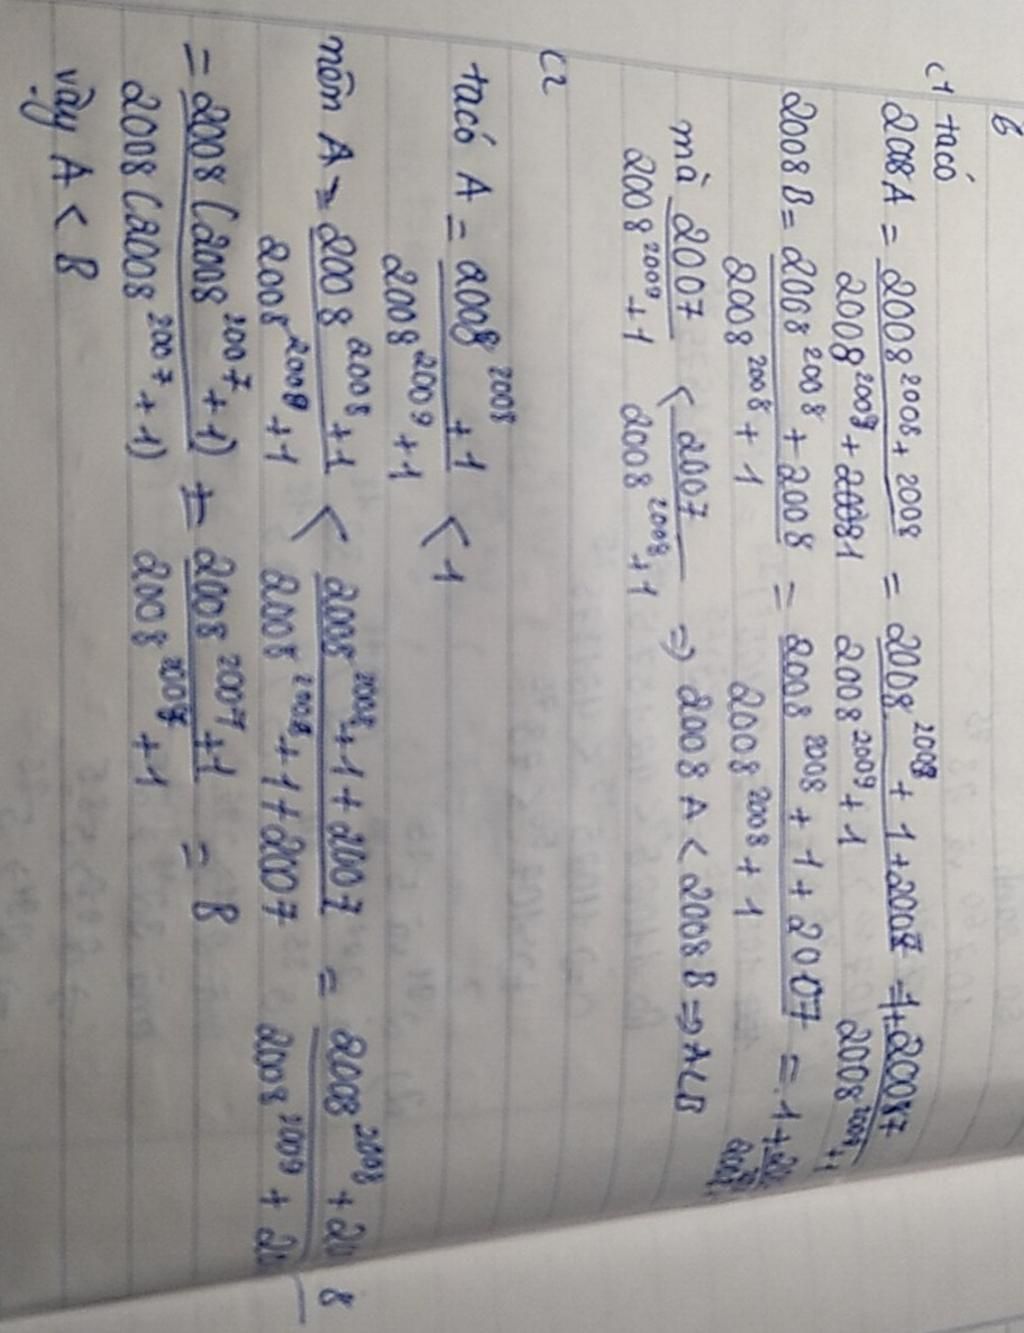 b
C1 ta có
2008A = 2008^2008 + 2008 / 2008^2009 + 1 = 2008^2009 + 1 + 2007 / 2008^2009 + 1 = 1 + 2007 / 2008^2009 + 1
2008B = 2008^2008 + 2008 / 2008^2008 + 1 = 2008^2008 + 1 + 2007 / 2008^2008 + 1 = 1 +
mà 2007 / 2008^2009 + 1 < 2007 / 2008^2008 + 1 => 2008A < 2008B => A < B
C2
ta có A = 2008^2008 + 1 / 2008^2009 + 1 < 1
nên A = 2008^2008 + 1 / 2008^2009 + 1 < 2008^2008 + 1 + 2007 / 2008^2008 + 1 + 2007 = 2008^2008 + 20 8 / 2008^2009 + 20
= 2008(2008^2007 + 1) / 2008(2008^2007 + 1) = 2008^2007 + 1 / 2008^2007 + 1 = B
vậy A < B